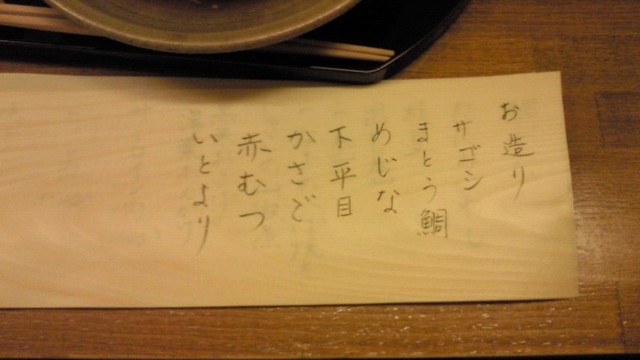 お造り
サゴシ
まとう鯛
めじな
下平目
かさご
赤むつ
いとより